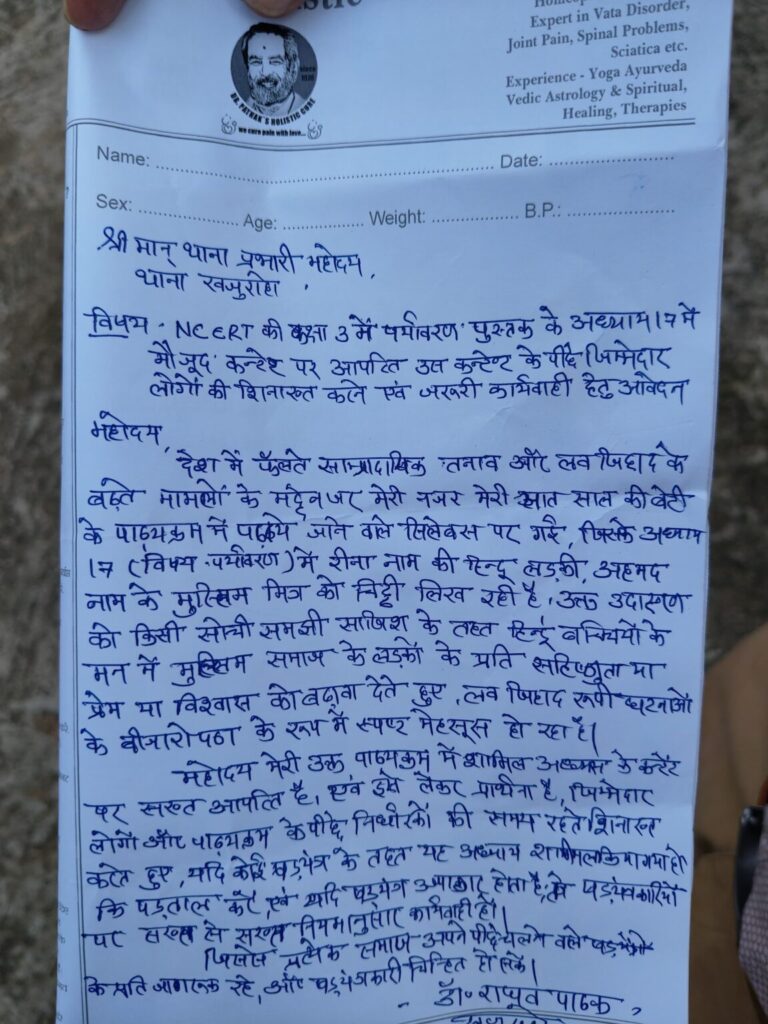 Expert in Vata Disorder,
Joint Pain, Spinal Problems,
Sciatica etc.
Experience - Yoga Ayurveda
Vedic Astrology & Spiritual,
Healing, Therapies
DR. PATHAK'S HOLISTIC CURE
we cure pain with love...
Name: Date:
Sex: Age: Weight: B.P.:
श्री मान् थाना प्रभारी महोदय,
थाना खजुराहो
विषय - NCERT की कक्षा 3 में पर्यावरण पुस्तक के अध्याय 17 में
मौजूद कन्टेन्ट पर आपत्ति उस कन्टेण्ट के पीछे जिम्मेदार
लोगों की शिनाख्त करने एवं जरूरी कार्यवाही हेतु आवेदन
महोदय,
देश में फैलते साम्प्रदायिक तनाव और लव जिहाद के
बढ़ते मामलों के मद्देनजर मेरी नजर मेरी सात साल की बेटी
के पाठ्यक्रम में पढाये जाने वाले सिलेबस पर गई, जिसके अध्याय
17 (विषय-पर्यावरण) में रीना नाम की हिन्दू लड़की, अहमद
नाम के मुस्लिम मित्र को चिट्ठी लिख रही है, उक्त उदाहरण
को किसी सोची समझी साजिश के तहत हिन्दू बच्चियों के
मन में मुस्लिम समाज के लड़कों के प्रति सहिष्णुता या
प्रेम या विश्वास को बढ़ावा देते हुए, लव जिहाद रूपी घटनाओं
के बीजारोपण के रूप में स्पष्ट मेहसूस हो रहा है।
महोदय मेरी उक्त पाठ्यक्रम में शामिल अध्याय के कन्टेंट
पर सख्त आपत्ति है, एवं इसे लेकर प्रार्थना है, जिम्मेदार
लोगों और पाठ्यक्रम के पीछे निर्धारकों की समय रहते शिनाख्त
करते हुए, यदि कोई षड़यंत्र के तहत यह अध्याय शामिल किया गया हो
कि पड़ताल करें, एवं यदि षड़यंत्र उजागर होता है, तो षड़यंत्रकारियों
पर सख्त से सख्त नियमानुसार कार्यवाही हो।
जिससे प्रत्येक समाज अपने पीछे चलने वाले षड़यंत्रों
के प्रति जागरूक रहे, और षड़यंत्रकारी चिन्हित हो सकें।
- डॉ. राघव पाठक,